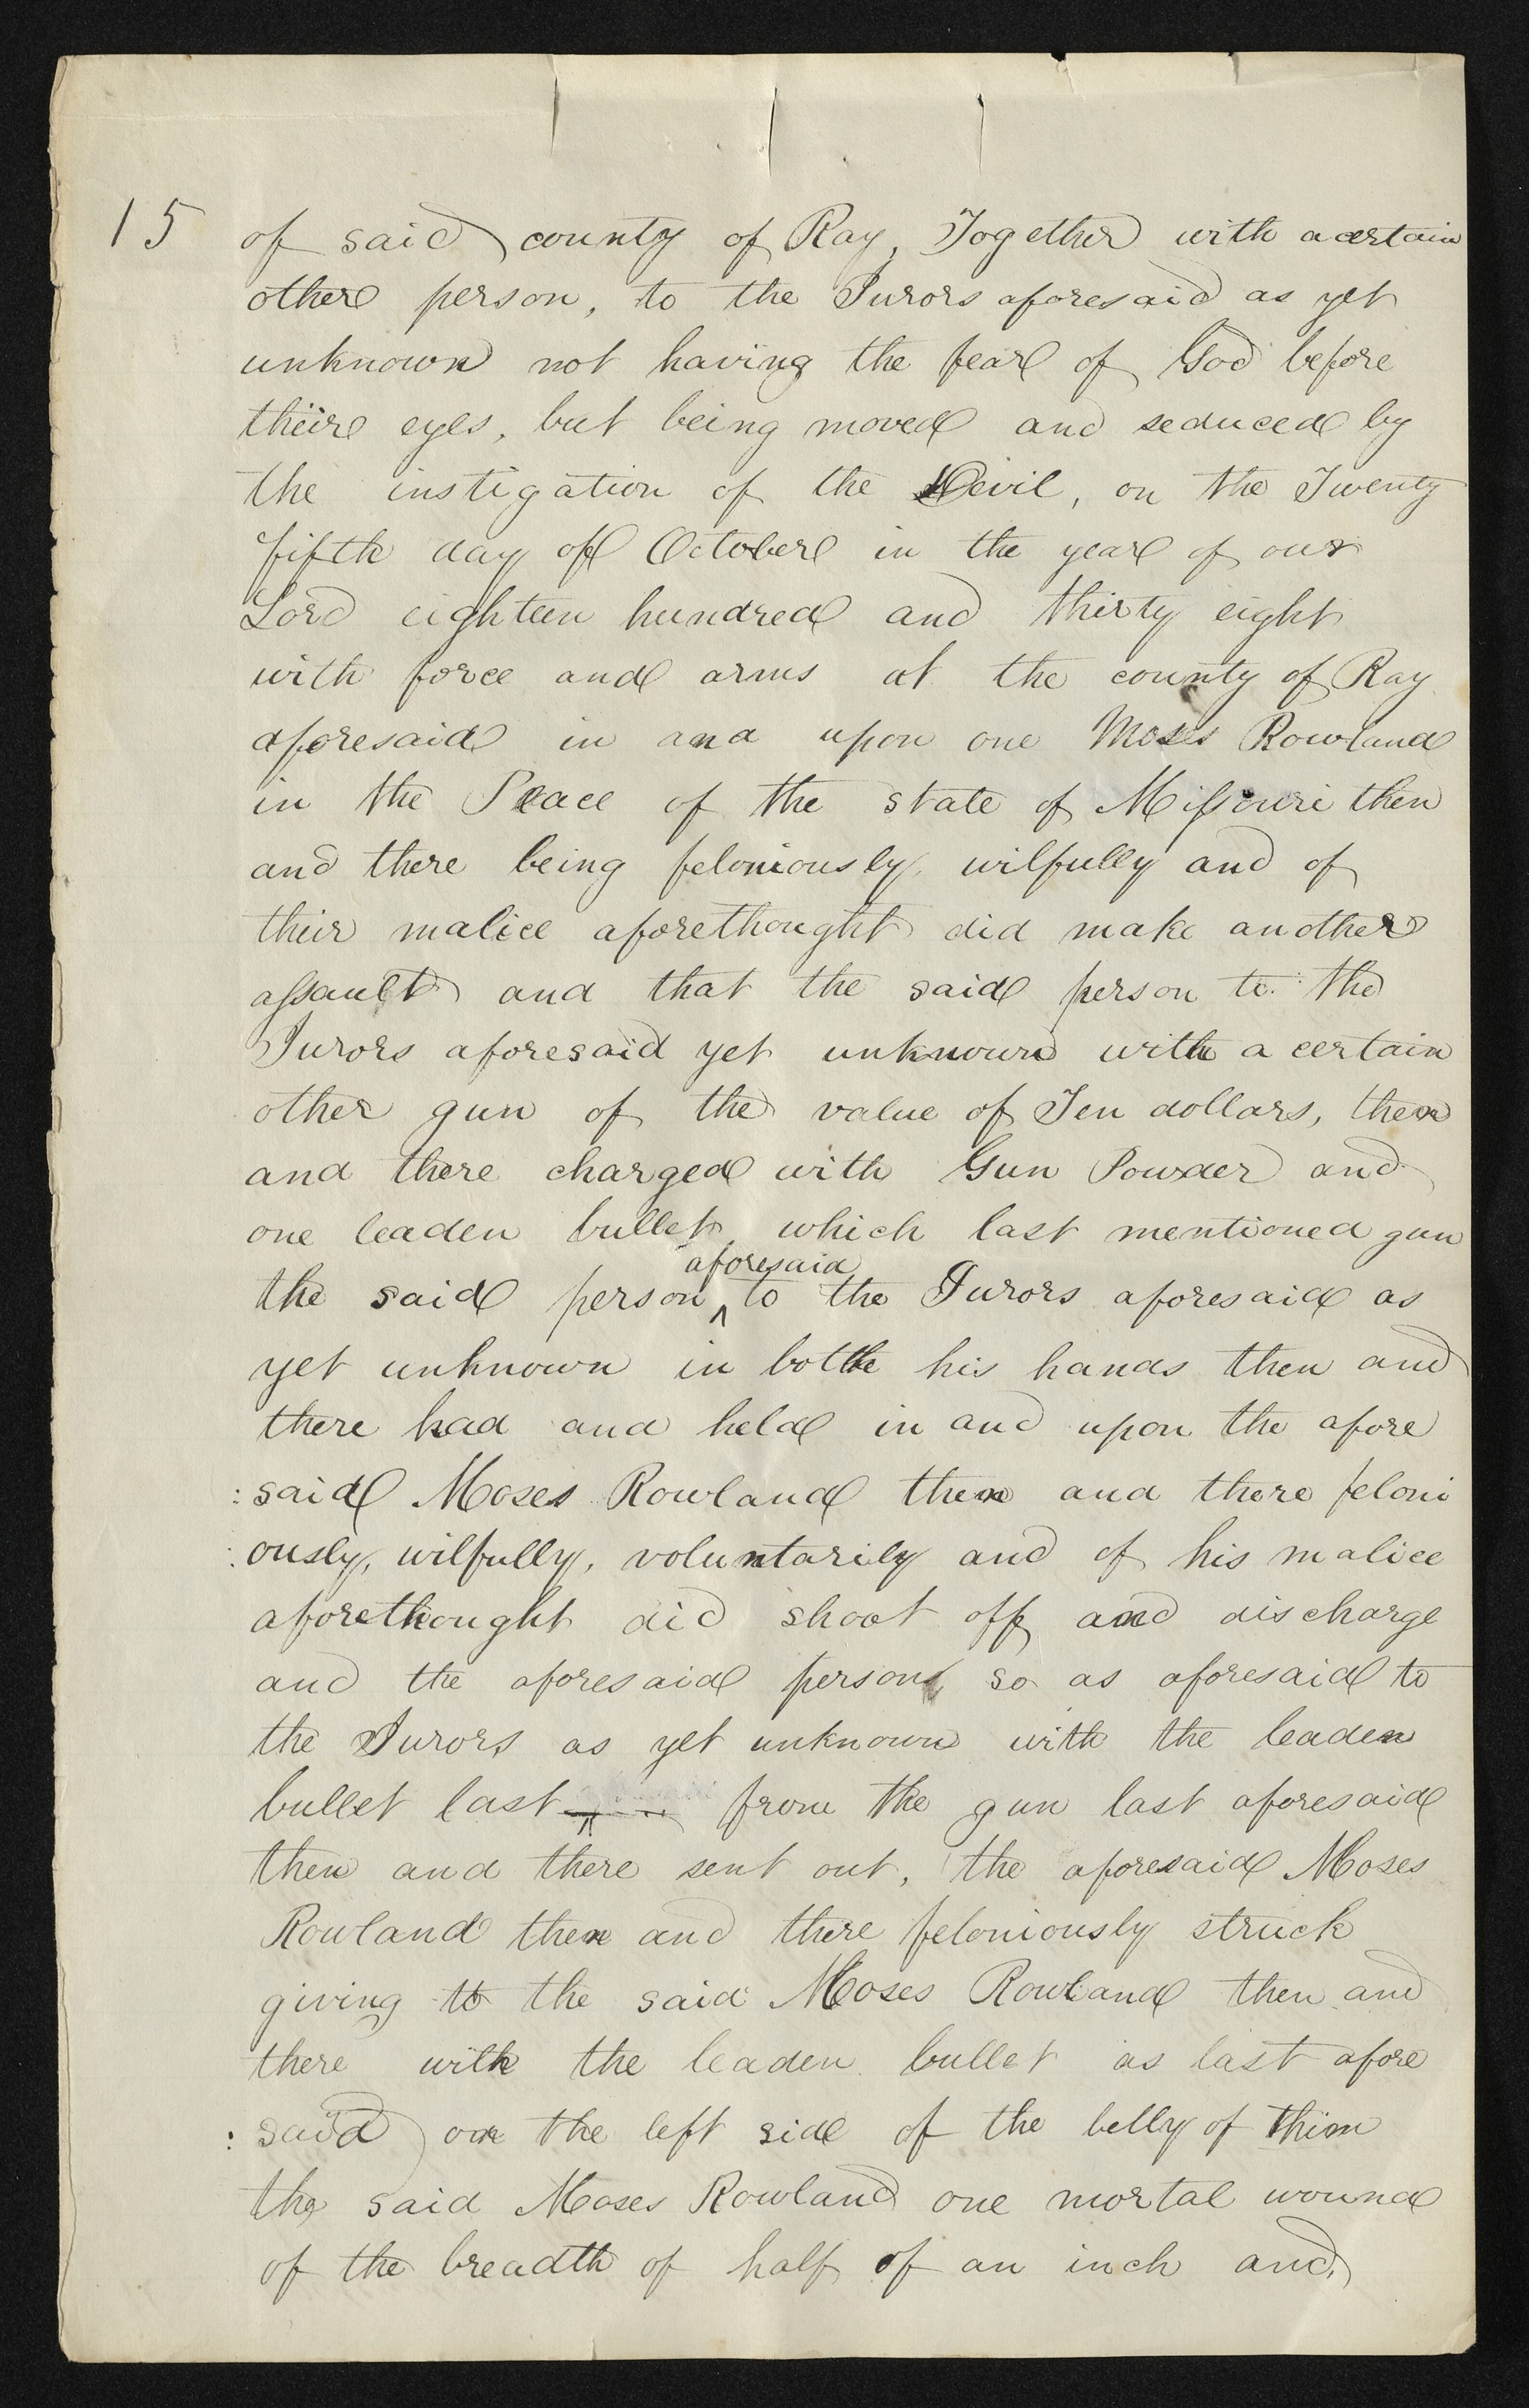 15 of said county of Ray, Together with a certain
other person, to the Jurors aforesaid as yet
unknown not having the fear of God before
their eyes, but being moved and seduced by
the instigation of the Devil, on the Twenty
fifth day of October in the year of our
Lord eighteen hundred and thirty eight
with force and arms at the county of Ray
aforesaid in and upon one Moses Rowland
in the Peace of the state of Missouri then
and there being feloniously, wilfully and of
their malice aforethought did make another
assault and that the said person to the
Jurors aforesaid yet unknown with a certain
other gun of the value of Ten dollars, then
and there charged with Gun Powder and
one leaden bullet which last mentioned gun
aforesaid
the said person ^ to the Jurors aforesaid as
yet unknown in both his hands then and
there had and held in and upon the afore
: said Moses Rowland then and there feloni
: ously, wilfully, voluntarily and of his malice
aforethought did shoot off and discharge
and the aforesaid person so as aforesaid to
the Jurors as yet unknown with the leaden
bullet last from the gun last aforesaid
then and there sent out, the aforesaid Moses
Rowland then and there feloniously struck
giving to the said Moses Rowland then and
there with the leaden bullet as last afore
: said on the left side of the belly of him
the said Moses Rowland one mortal wound
of the breadth of half of an inch and